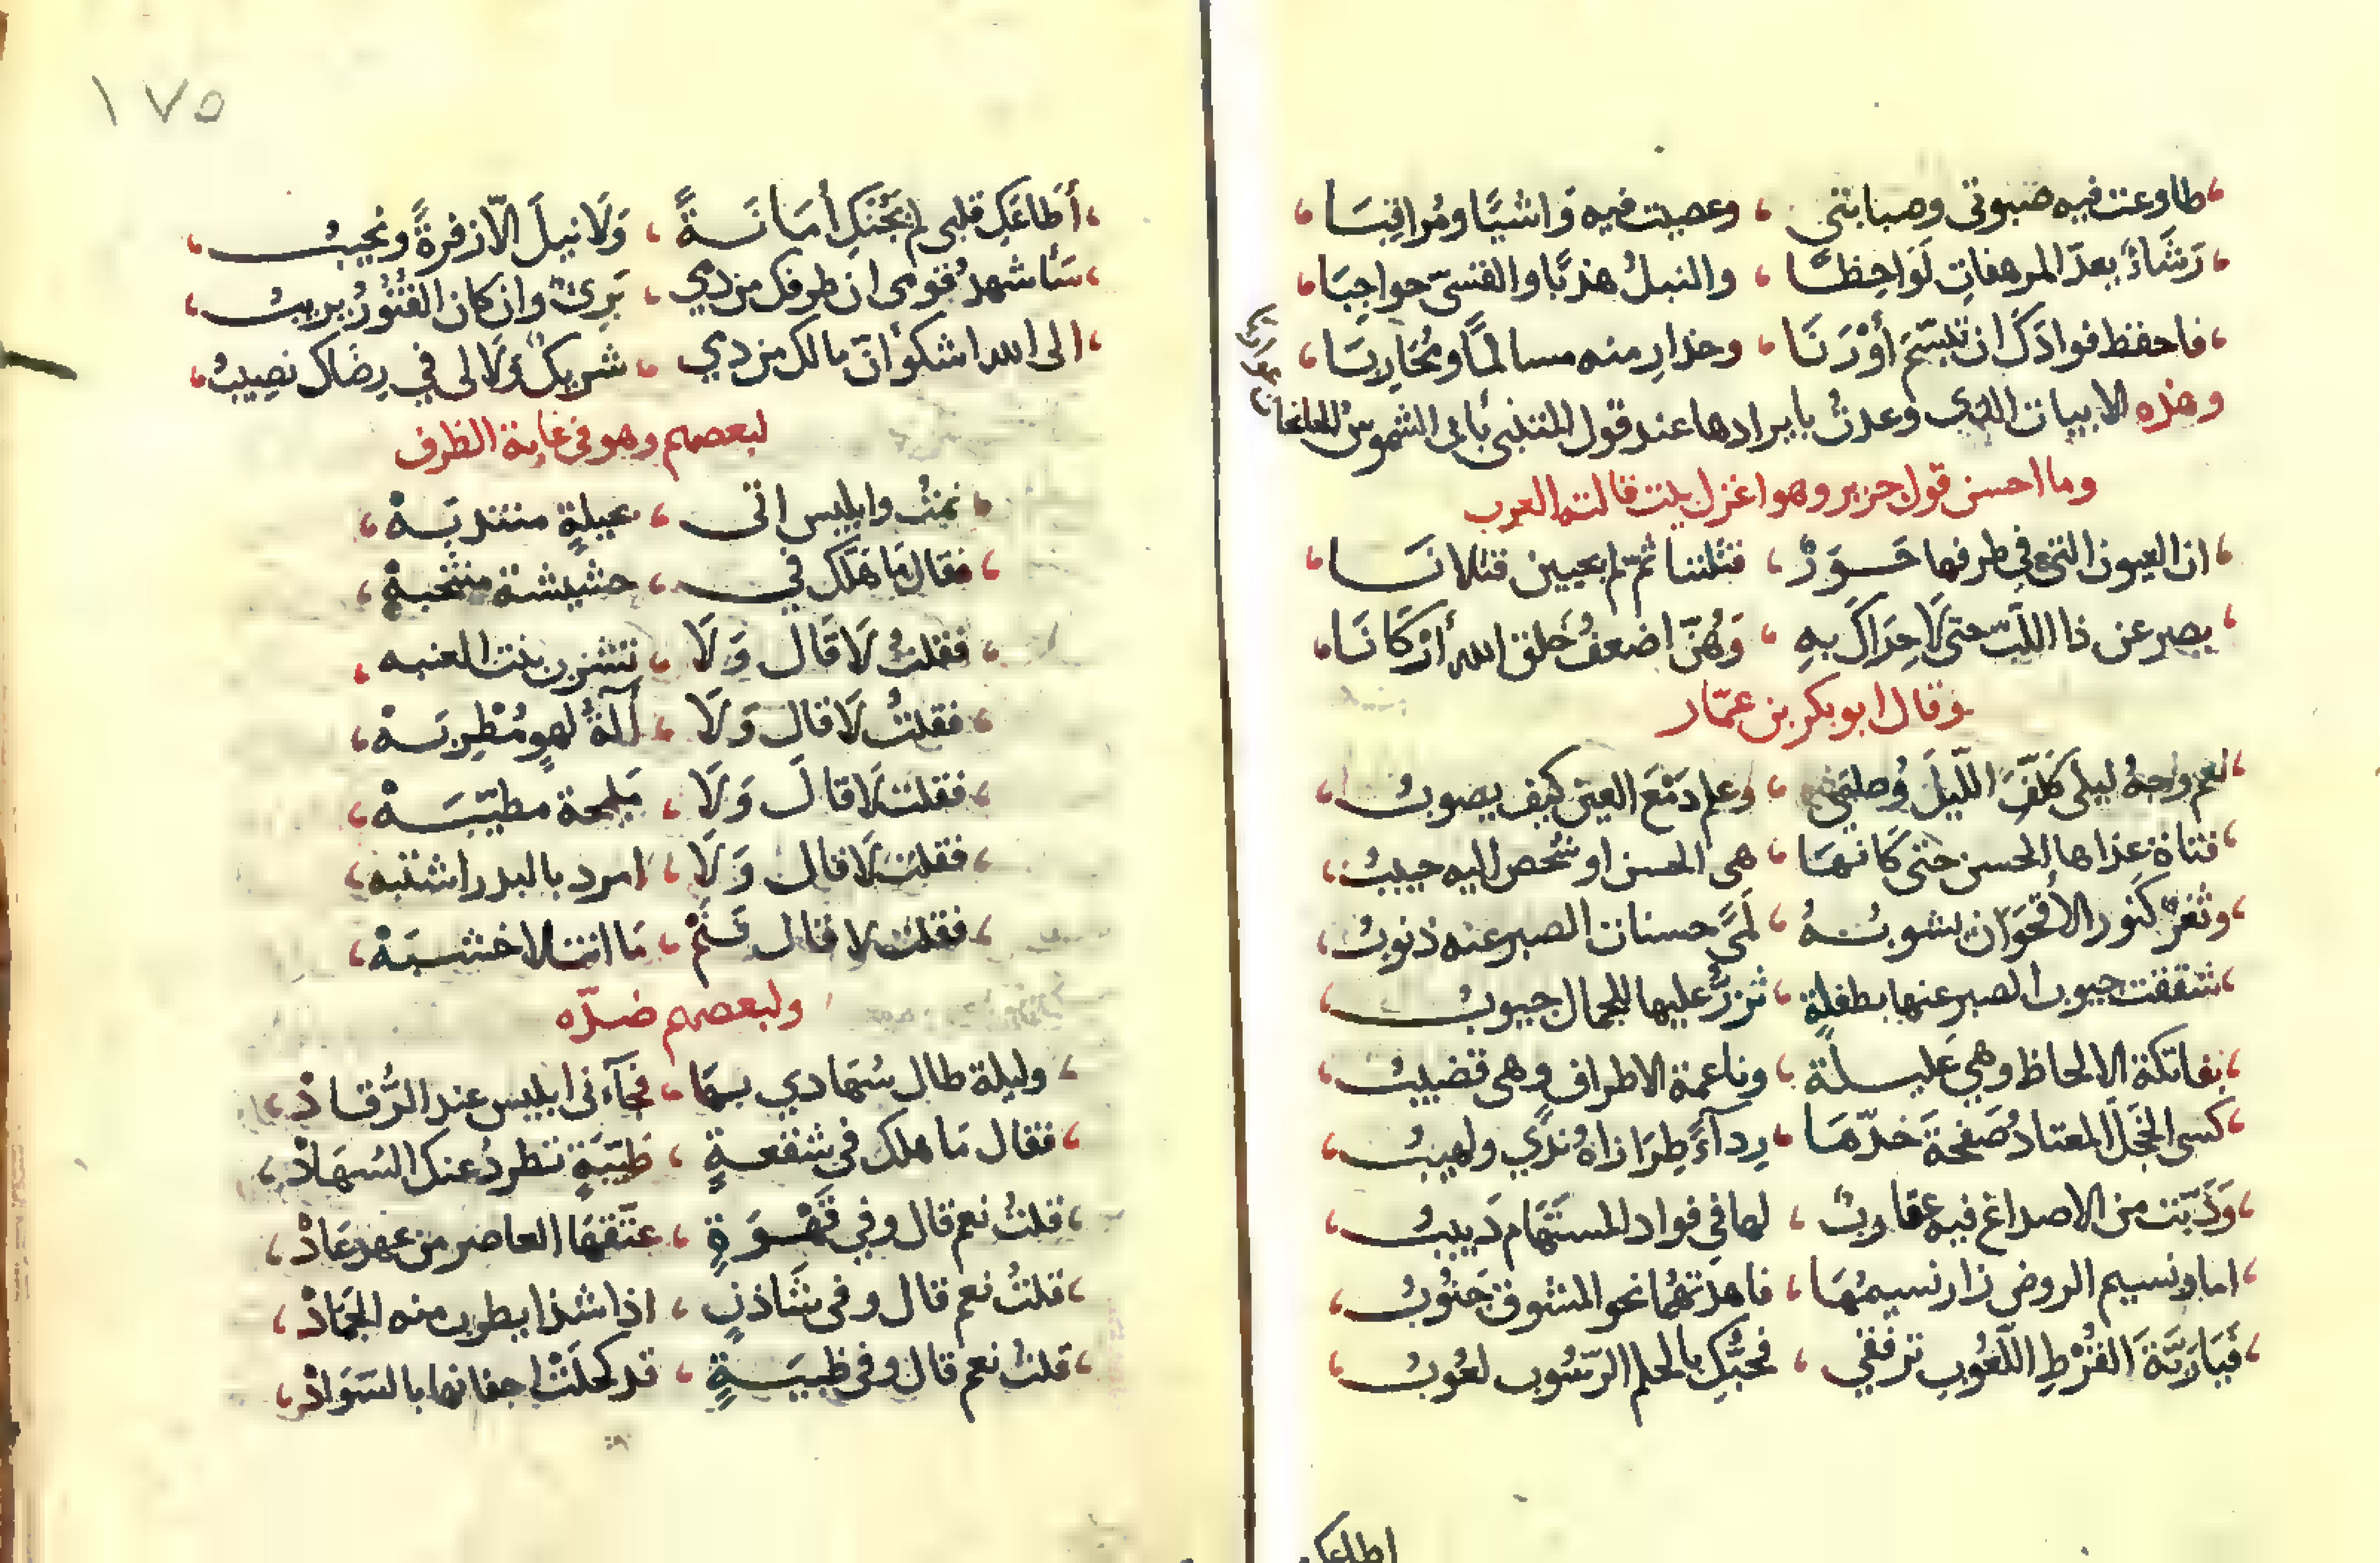 طاوعت فيه صبوتي وصبابتي ، وعصيت فيه وَاشيًا ومُراقِبَا
رَشَاءٌ بعدّ المرهفاتِ لَوَاحِظًا ، والنبلُ هذبًا والقسىّ حواجبَا
فاحفظ فوادَكَ ان تبسّمَ أوْرَنَا ، وحذارِ منه مسالمًا ومُحَارِبَا
وهذه الابيات الذى وعدتُ بايرادها عند قول المتنبى بابى الشموسُ الجانحا
ت غواربا
وما احسن قول جرير وهو اغزل بيت قالته العرب
ان العيون التى فى طرفها حَوَرٌ ، قتلننا ثمّ لم يحيين قتلانَا
يصرعن ذا اللبّ حتى لَا حِرَاكَ بهِ ، وَهُنّ اضعفُ خلق الله أرْكَانَا
وقال ابو بكر بن عمّار
وجهُ ليلى الليلَ ، دَمْعَ العين كيف يصوبُ
فتاة غذاها الحسن حتى كانهَا ، هى الحسن او شخص اليه حبيبُ
وثغرٌ كنور الأقحوان يشوبُهُ ، لمًى حسنات الصبر عنه ذنوبُ
شققت جيوب الصبر عنها بطفلةٍ ، تزرُّ عليها للجمال جيوبُ
بفاتكة الالحاظ وهي عَليلة ، وناعمة الاطراف وهى قضيبُ
كسى الخجلَ المعتادُ صَفحةَ خدّهَا ، رِدآءً طِرَازاهُ ندًي ولهيبُ
وَدَبّت من الاصداغ فيه عقاربٌ ، لها فى فواد المستهَام دَبيبُ
اما ونسيم الروض زار نسيمُهَا ، فاهدتهُما نحو المشوق جَنُوبُ
فَيَا رَبَّةَ القُرْطِ اللّعُوبِ ترفقي ، فحبُّكِ بالحلم الرّسُوبِ لعُوبُ
اطاعك
١٧٥
أطَاعَكِ قلبى لم يَخُنكِ أمَانَةً ، وَلَا نيلَ الّا زفرةٌ ونحيبُ
سَأشهدُ قومى ان طرفكِ من دمي ، بَرِئٌ وان كان الفُتُورُ يريبُ
الى الله اشكو أنّ مالكِ من دمي ، شريكٌ ولَا لى في رِضَاكِ نصِيبُ
لبعضهم وهو فى غاية الظرف
نمتُ وابليس اتى ، بحيلةٍ منتدبَهْ
فقال مَا هَلّك في ، حشيشة منتخبهْ
فقلتُ لَا قَال وَلَا ، تشرب بنت العنبه
فقلتُ لَا قال وَلَا ، آلَةُ لهوٍ مُطْرِبَهْ
فقلت لَا قالَ وَلَا ، مَليحة مطيّبَهْ
فقلت لَا قال وَلَا ، امرد بالبدر اشتبه
فقلت لا قال فَنَمْ ، مَا انت الا خشبَهْ
ولبعضهم ضدّه
وليلة طال سُهَادي بهَا ، فجآءنى ابليس عند الرُّقادْ
فقال مَا هلك فى شفعةٍ ، طيّبَةٍ تطردُ عنك السُهَادْ
قلتُ نعم قال وفي قَهْوَةٍ ، عتّقهَا العاصر من عهد عَادْ
قلتُ نعم قال وفى شَاذنٍ ، اذا شذا يطرب منه الجَمَادْ
قلتُ نعم قال وفى ظبيَةٍ ، قد كحلَتْ اجفانها بالسّوَادْ